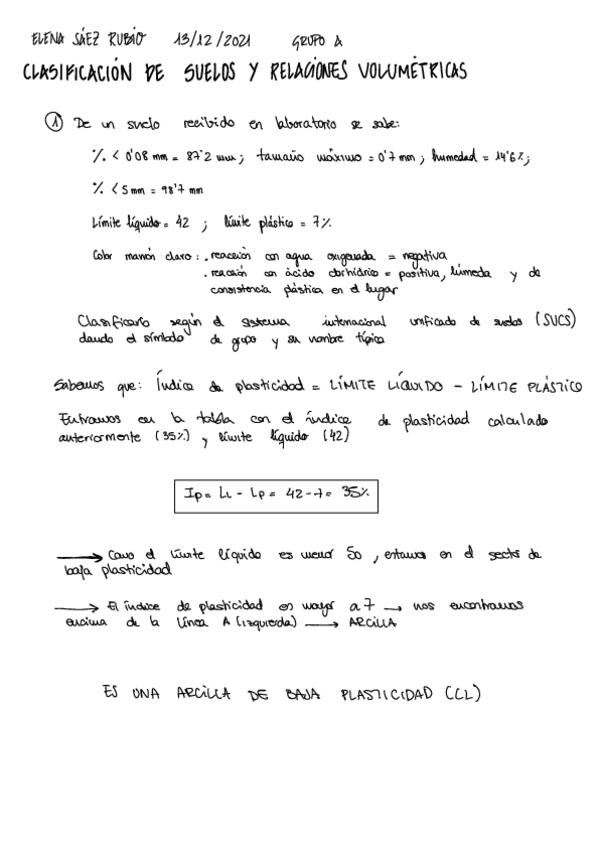 ELENA SÁEZ RUBIO 13/12/2021 GRUPO A
CLASIFICACIÓN DE SUELOS Y RELACIONES VOLUMÉTRICAS
① De un suelo recibido en laboratorio se sabe:
% < 0'08 mm = 87'2 mm; tamaño máximo = 0'7 mm; humedad = 14'6%;
% < 5 mm = 98'7 mm
Límite líquido = 42 ; límite plástico = 7%
Color marrón claro: . reacción con agua oxigenada = negativa
. reacción con ácido clorhídrico = positiva, húmeda y de
consistencia plástica en el lugar
Clasificarlo según el sistema internacional unificado de suelos (SUCS)
dando el símbolo de grupo y su nombre típico
Sabemos que: Índice de plasticidad = LÍMITE LÍQUIDO - LÍMITE PLÁSTICO
Entramos en la tabla con el índice de plasticidad calculado
anteriormente (35%) y límite líquido (42)
Ip = LL - Lp = 42-7= 35%
→ Como el límite líquido es menor 50, estamos en el sector de
baja plasticidad
→ El índice de plasticidad es mayor a 7 → nos encontramos
encima de la línea A (izquierda) → ARCILLA
ES UNA ARCILLA DE BAJA PLASTICIDAD (CL)